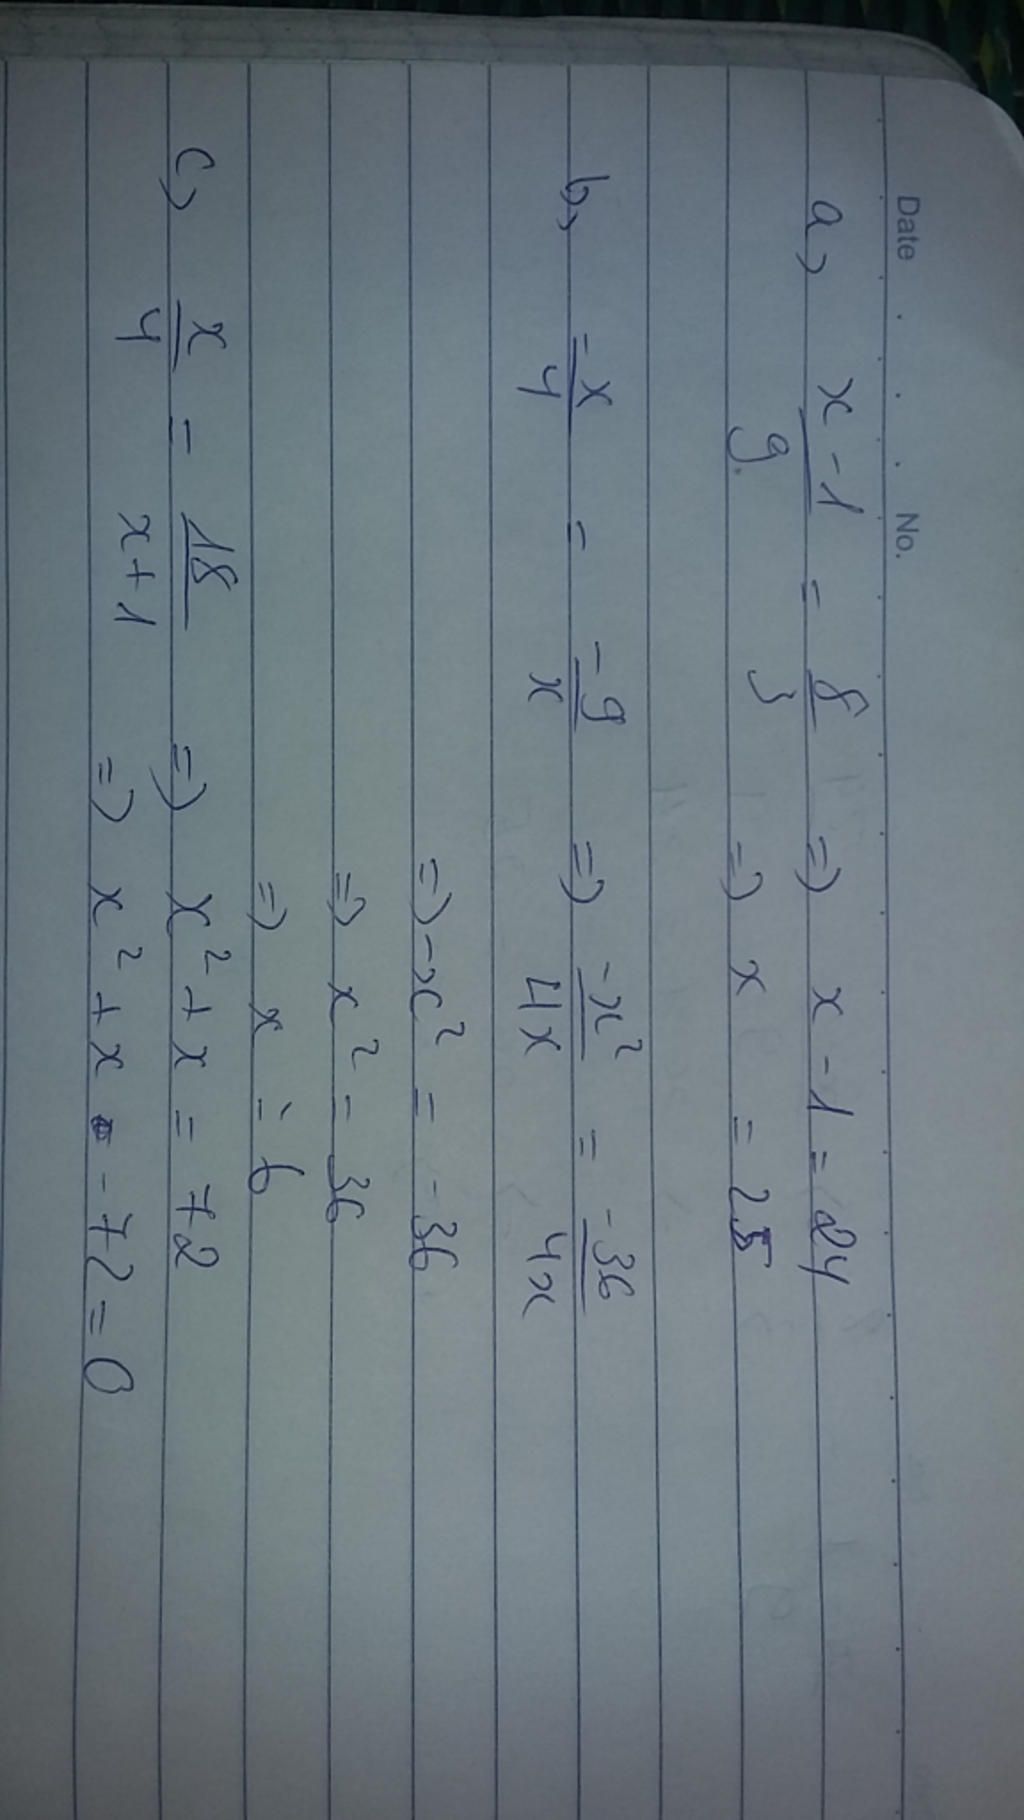 Date No.
a, x-1/9 = 8/3 => x-1=24
=> x = 25
b, -x/4 = -9/x => -x²/4x = -36/4x
=> -x² = -36
=> x² = 36
=> x = 6
c, x/4 = 18/x+1 => x²+x = 72
=> x²+x -72=0